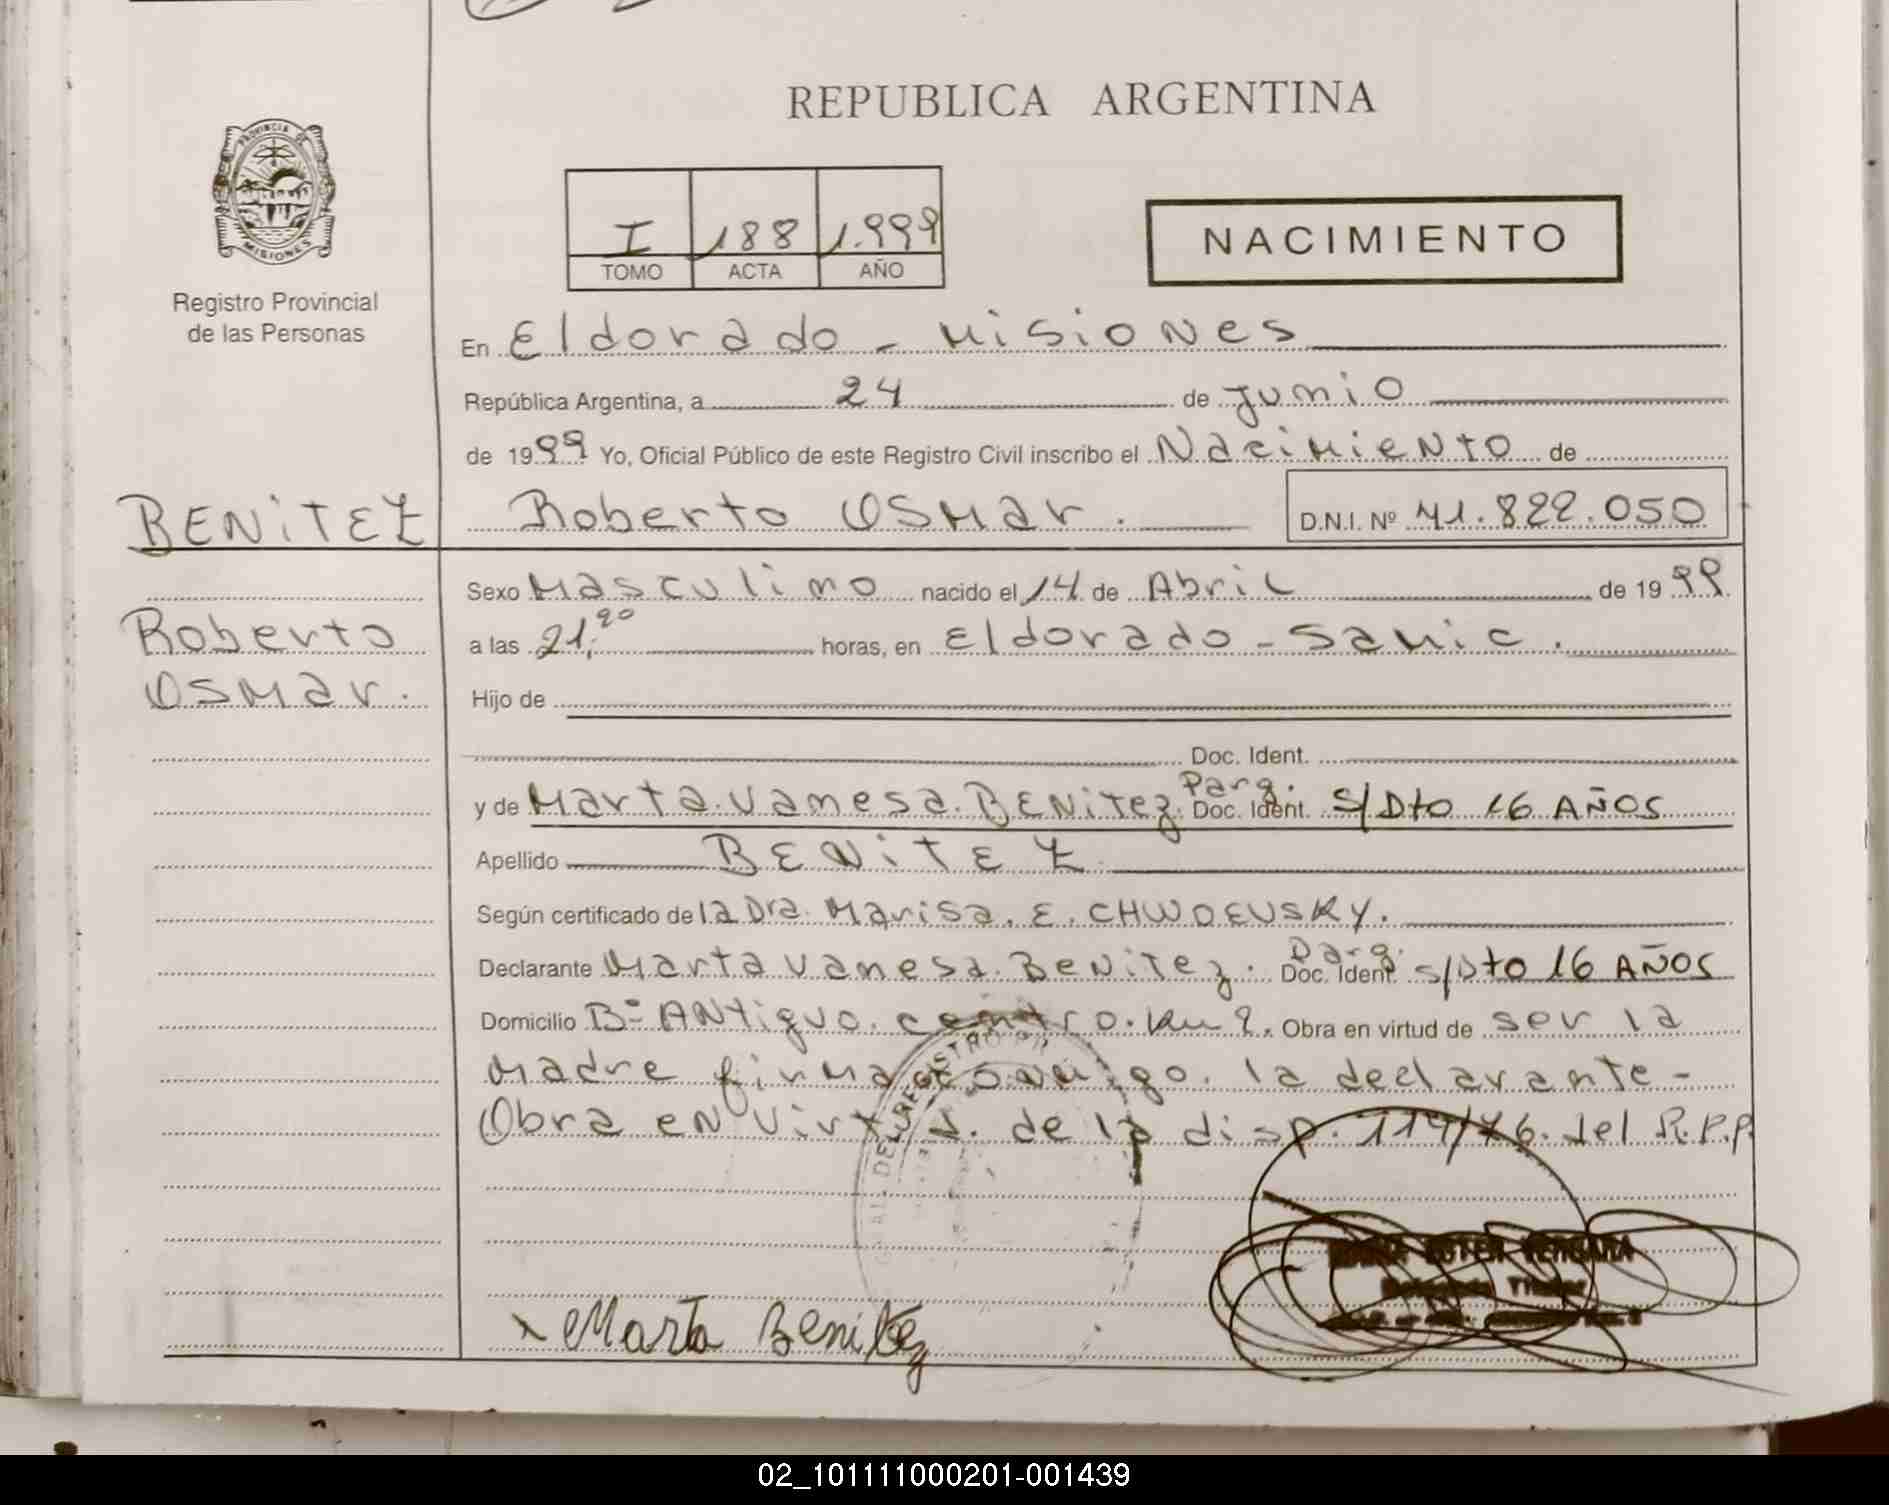 REPUBLICA ARGENTINA
PROVINCIA DE
MISIONES
Registro Provincial
de las Personas
I 188 1.999
TOMO ACTA AÑO
NACIMIENTO
En Eldorado - Misiones
República Argentina, a 24 de Junio
de 1999 Yo, Oficial Público de este Registro Civil inscribo el Nacimiento de
BENITEZ Roberto Osmar. D.N.I. Nº 41.822.050
Sexo Masculino nacido el 14 de Abril de 1999
Roberto
a las 21, horas, en Eldorado - Samic.
Osmar.
Hijo de
Doc. Ident.
y de Marta Vanesa BENITEZ. Parg. Doc. Ident. S/Dto 16 AÑOS
Apellido BENITEZ
Según certificado de la Dra. Marisa. E.
Declarante Marta Vanesa Benitez. Parg. Doc. Ident. S/Dto 16 AÑOS
Domicilio Bº ANtiguo centro. Obra en virtud de ser la
Madre firma conmigo la declarante -
Obra en virtud. de la disp. 114/76. del R.P.P.
DEL REGISTRO PR
x Marta Benitez
ESTER VERGARA
02_101111000201-001439